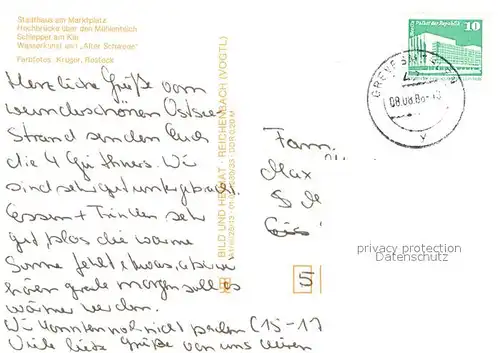 Stadthaus am Marktplatz
Hochbrücke über den Mühlenbach
Schlepper am Kai
Wasserkunst und „Alter Schwede“
Farbfotos: Krüger, Rostock
Herzliche Grüße vom
wunderschönen Ostsee-
Strand senden Euch
die 4 Günthers. Wir
sind sehr gut untergebracht.
Essen + Trinken sehr
gut, blos die warme
Sonne fehlt etwas, aber wir
hören grade morgen soll es
wärmer werden.
Wir konnten noch nicht baden (15-17
Viele liebe Grüße von uns
BILD UND HEIMAT · REICHENBACH (VOGTL)
DDR 0,20 M
Berlin Palast der Republik 10
DDR
08.08.86
y
Fam.
Max
5
privacy protection
Datenschutz